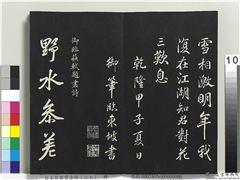 雪相激明年我
復在江湖知君對花
三歎息
乾隆甲子夏日
御筆臨東坡書
御臨蘇軾題畫詩
野水參差